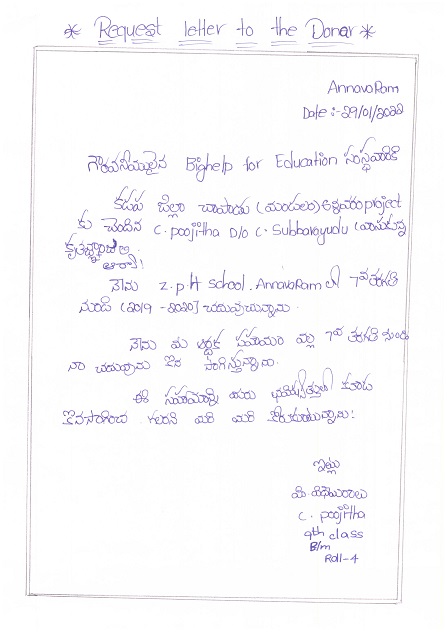 * Request letter to the Donar *
Annavaram
Date :- 29/01/2022
గౌరవనీయులైన Bighelp for Education సంస్థవారికి
కడప జిల్లా చాపాడు (మండలం) అన్నవరం project
కు చెందిన C. poojitha D/o C. Subbarayudu
నేను Z.P.H School. Annavaram లో 7వ తరగతి
నుండి (2019 - 2020) చదువుచున్నాను.
నేను మీ ఆర్థిక సహాయం వల్ల 7వ తరగతి నుండి
నా చదువును కొన సాగిస్తున్నాను.
ఈ సహాయాన్ని మీరు భవిష్యత్తులో కూడా
కొనసాగించ గలరని మరి మరి కోరుకుంటున్నాను!
ఇట్లు
మీ విధేయురాలు
C. poojitha
9th class
B/m
Roll-4